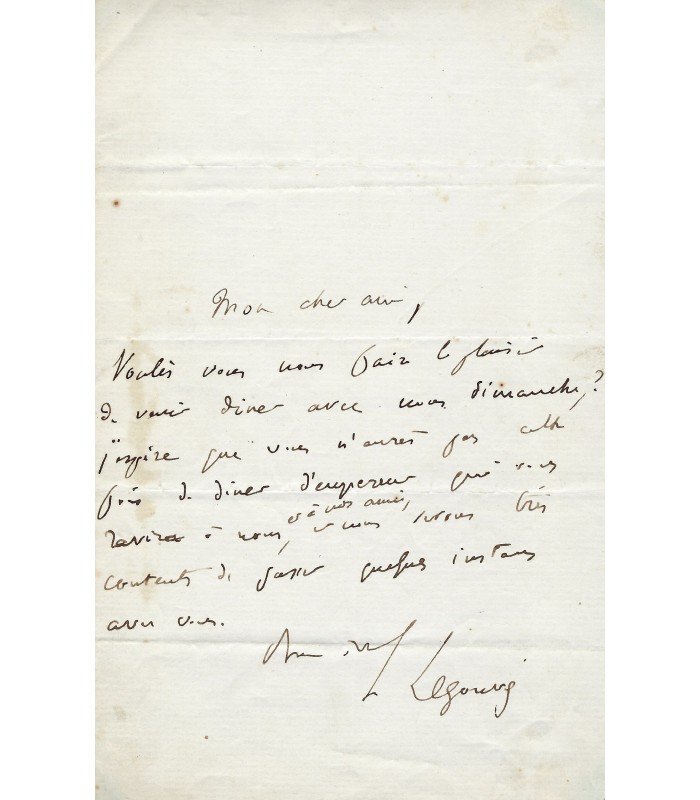 Mon cher ami,
Voulés vous nous faire le plaisir
de venir diner avec nous dimanche?
j'espère que vous n'aurés pas cette
fois de diner d'empereur qui vous
ravira à nous, et à nos amis,
et nous serons très
contents de passer quelques instans
avec vous.
Legouvé